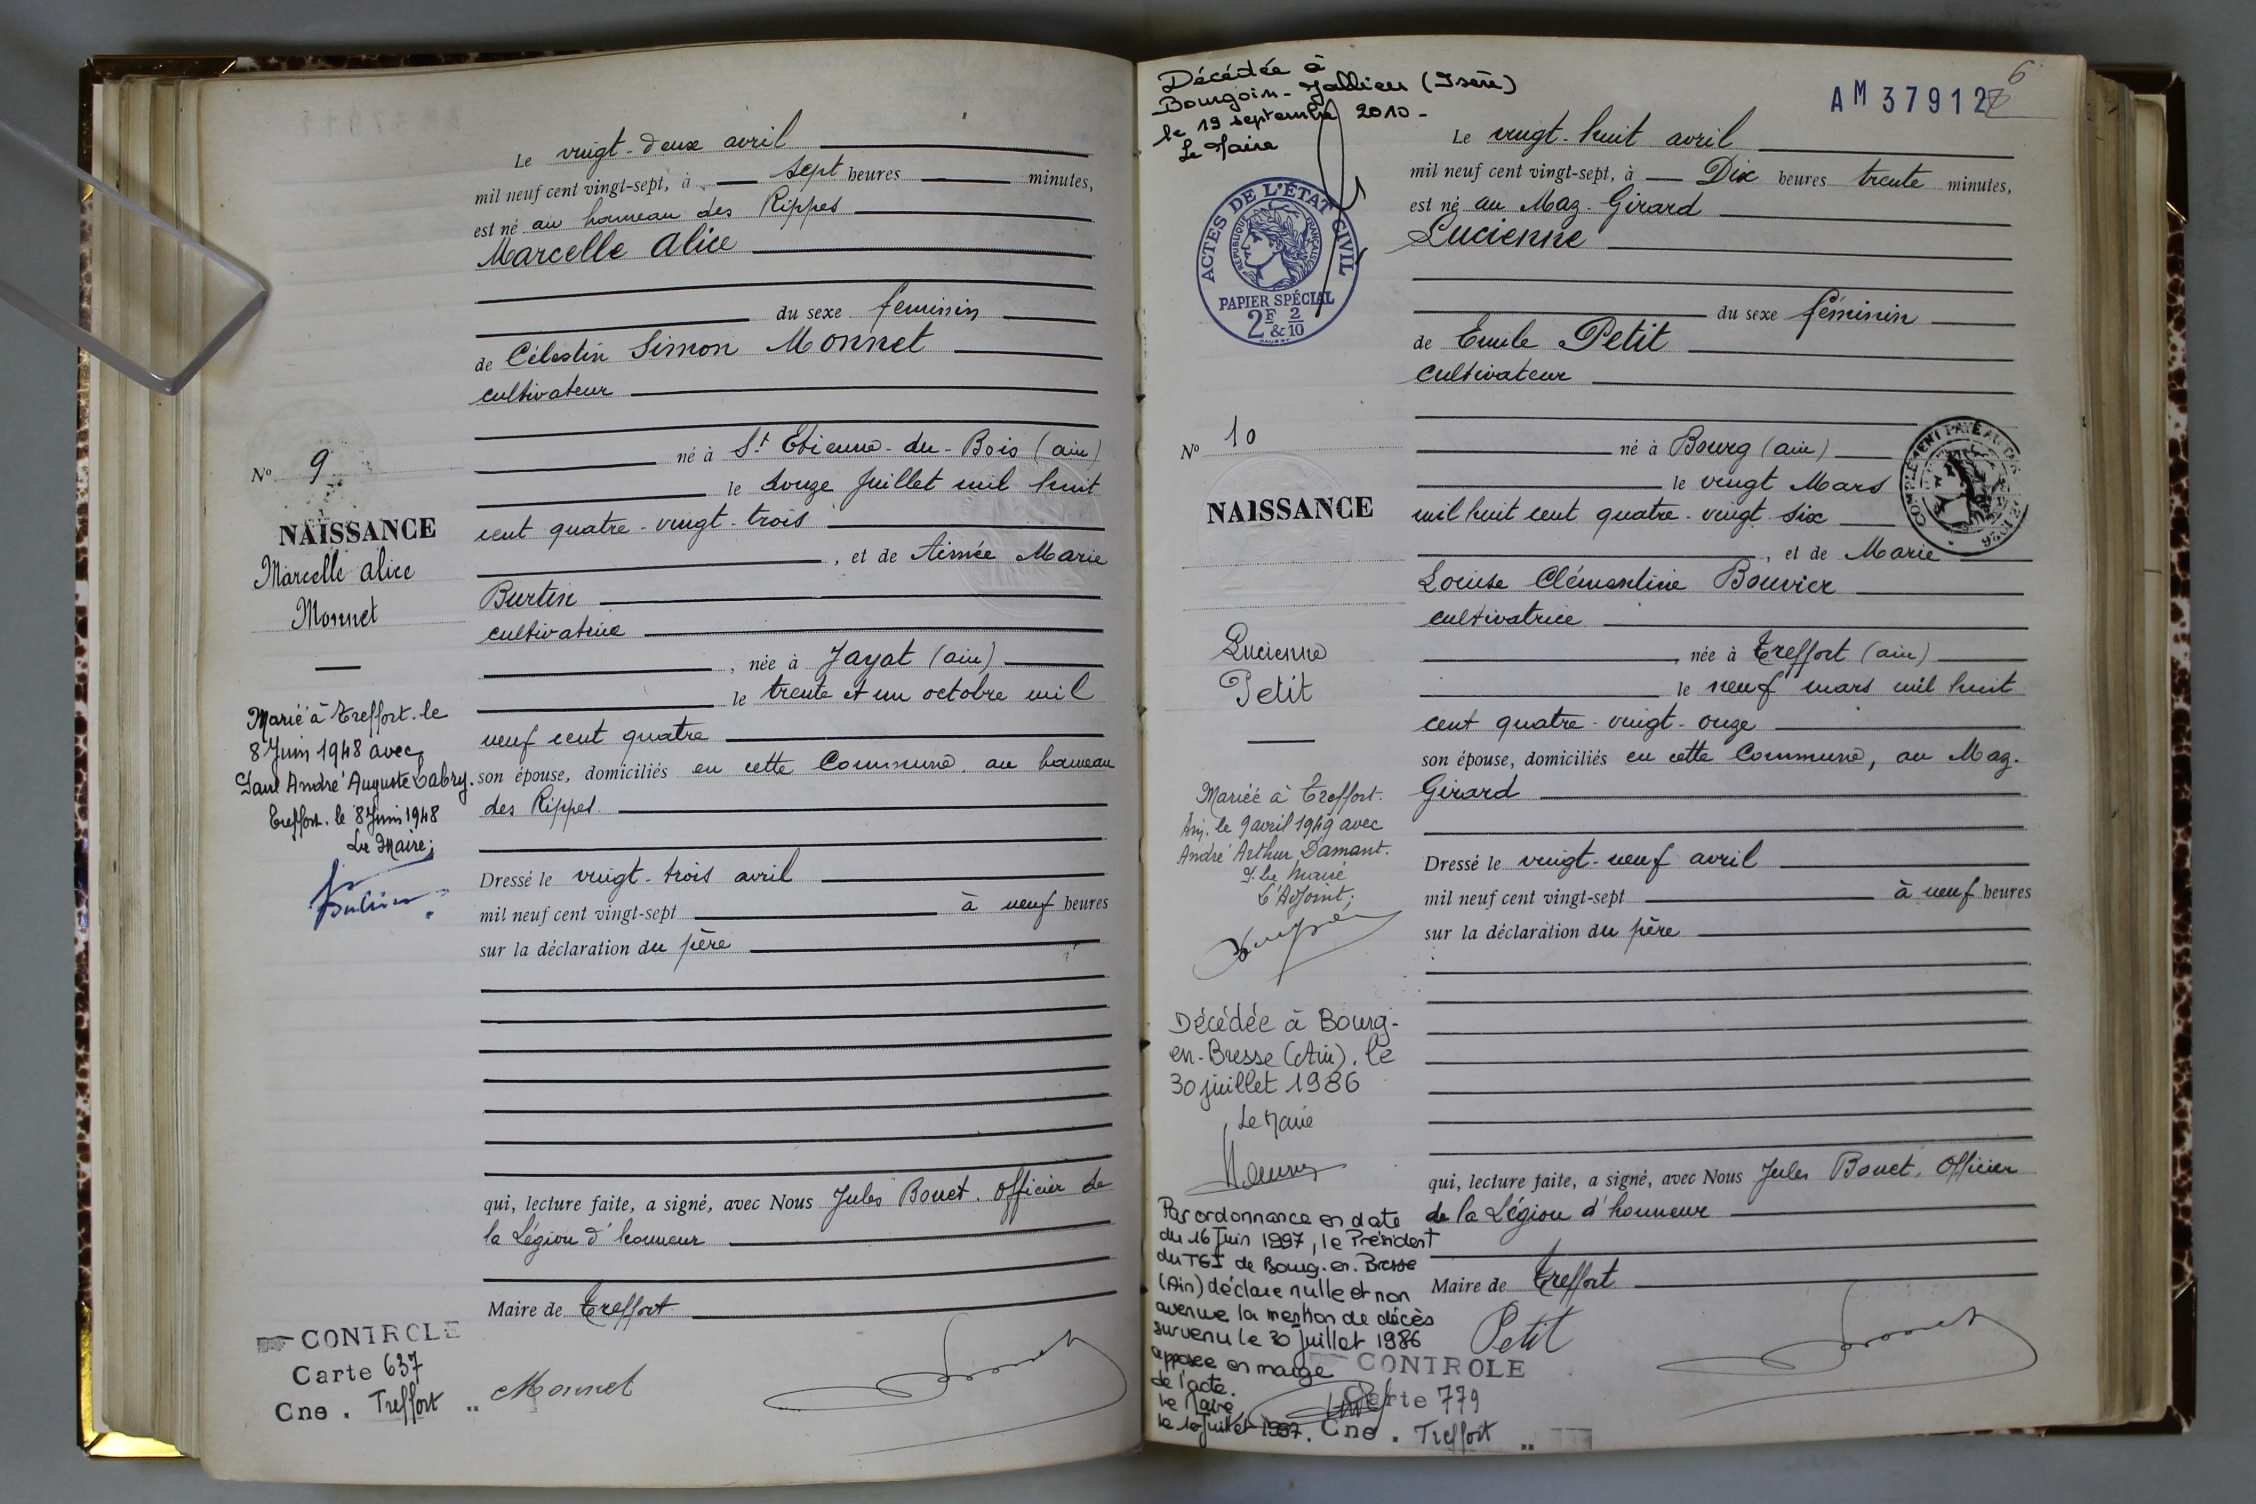 Le vingt-deux avril
mil neuf cent vingt-sept, à sept heures minutes,
est né au hameau des Rippes
Marcelle Alice
du sexe féminin
de Célestin Simon Monnet
cultivateur
né à St Etienne-du-Bois (ain)
le douze juillet mil huit
cent quatre-vingt-trois
, et de Aimée Marie
Burtin
cultivatrice
, née à Jayat (ain)
le trente et un octobre mil
neuf cent quatre
son épouse, domiciliés en cette Commune, au hameau
des Rippes.
Dressé le vingt-trois avril
mil neuf cent vingt-sept à neuf heures
sur la déclaration du père
qui, lecture faite, a signé, avec Nous Jules Bouet, Officier de
la Légion d'honneur
Maire de Treffort
Monnet
No 9
NAISSANCE
Marcelle Alice
Monnet
Marié à Treffort. le
8 Juin 1948 avec
Paul André Auguste Labry.
Treffort. le 8 Juin 1948
Le Maire;
CONTROLE
Carte 637
Cne. Treffort
Décédée à
Bourgoin-Jallieu (Isère)
le 19 septembre 2010-
Le Maire
ACTES DE L'ÉTAT CIVIL
RÉPUBLIQUE FRANÇAISE
PAPIER SPÉCIAL
2F & 2/10
AM 37912
6
Le vingt-huit avril
mil neuf cent vingt-sept, à Dix heures trente minutes,
est né au Maz-Girard
Lucienne
du sexe féminin
de Emile Petit
cultivateur
né à Bourg (ain)
le vingt Mars
mil huit cent quatre-vingt-six
, et de Marie
Louise Clémentine Bouvier
cultivatrice
, née à Treffort (ain)
le neuf mars mil huit
cent quatre-vingt-onze
son épouse, domiciliés en cette Commune, au Maz-
Girard
Dressé le vingt-neuf avril
mil neuf cent vingt-sept à neuf heures
sur la déclaration du père
qui, lecture faite, a signé, avec Nous Jules Bouet, Officier
de la Légion d'honneur
Maire de Treffort
Petit
No 10
NAISSANCE
Lucienne
Petit
Mariée à Treffort.
Ain. le 9 avril 1949 avec
André Arthur Damant.
P. le Maire
L'Adjoint;
Décédée à Bourg-
en-Bresse (Ain). le
30 juillet 1986
Le Maire
Par ordonnance en date
du 16 Juin 1997, le Président
du TGI de Bourg-en-Bresse
(Ain) déclare nulle et non
avenue la mention de décès
survenu le 30 Juillet 1986
apposée en marge
de l'acte.
Le Maire
le 10 Juillet 1997.
CONTROLE
Carte 779
Cne. Treffort